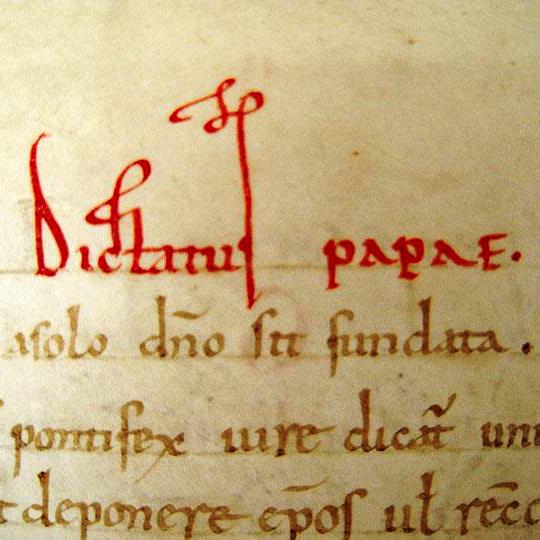 Dictatus papae.
a solo dn̄o sit fundata.
pontifex iure dicat̄
deponere ep̄os ul̄